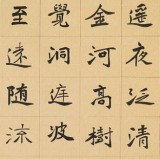 遥夜泛清
金河高樹
覺洞庭波
至遠随流